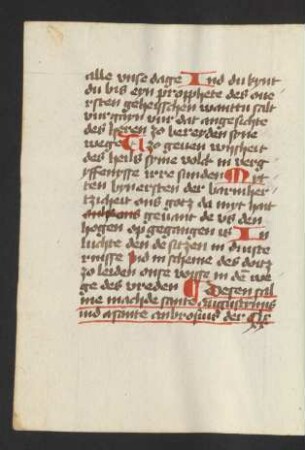 alle vnse dage Ind du kynt
du bis eyn prophete des oue
rsten geheisschen wanttu salt
vurgayn vur dat angesichte
des heren zo bereyden syne
wege Czo geuen wijsheit
des heils syme volck in verg
yffenysse irre sunden Myt
ten bynnersten der barmher
tzicheit ons gotz da myt hait
geuant de vs den
hogen op gegangen is In
luchte den de sitzen in duiste
rnisse ind in scheme des doitz
zo leiden onse voisse in den we
ge des vreden Desen sal
me machde sante augustinus
ind sante ambrosius der